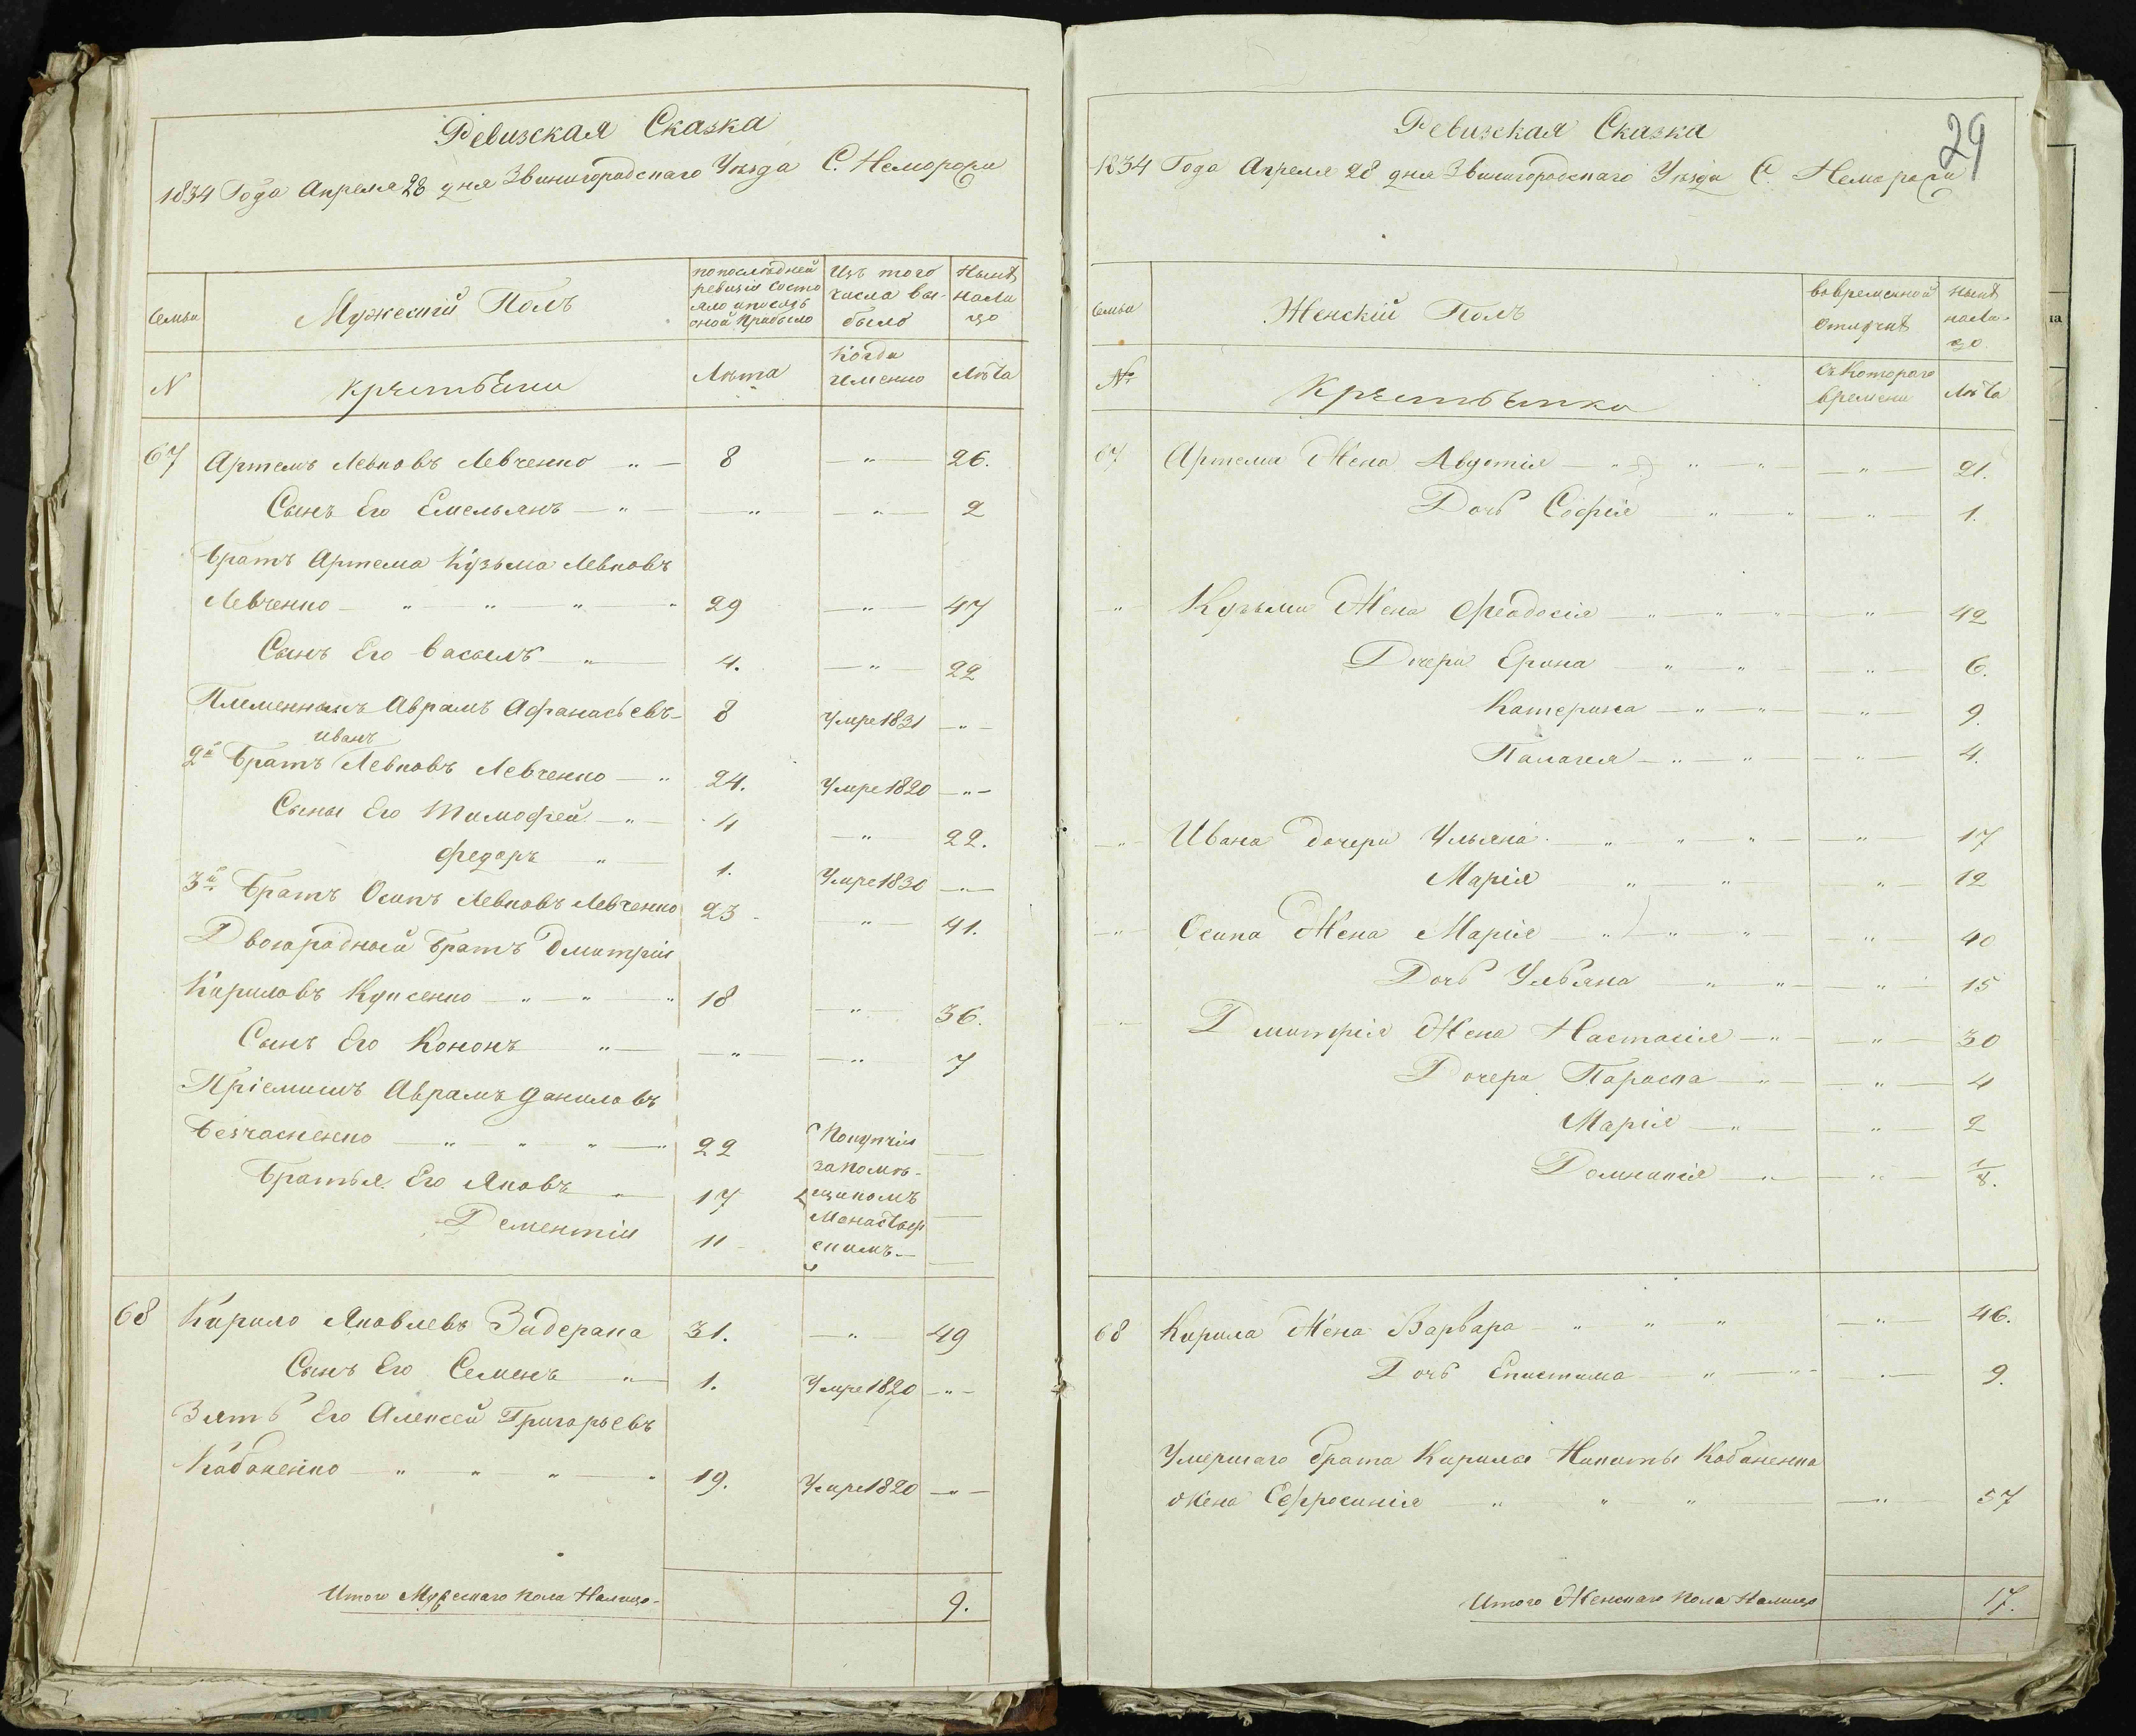 Ревизская Сказка
1834 Года Апреля 28 дня Звинигородскаго Уезда С. Неморожи
Семьи
Мужескій Полъ
попоследней ревизіи состо яло ипослѣ оной Прибыло
Изъ того числа вы- было
Нынѣ нали цо
N
крестьяни
Лѣта
Когда именно
Лѣта
67 Артемъ Левковъ Левченко " — 8 — " — 26.
Сынъ Его Емельянъ — " — — " — — " — 2
Братъ Артема Кузьма Левковъ
Левченко — " " " — " 29 — " — 47
Сынъ Его Василь — " — 4. — " — 22
Племенникъ Аврамъ Афанасьевъ — 8 Умре 1831 — " —
Иванъ
2й Братъ Левковъ Левченко — " 24. Умре 1820 — " —
Сыны Его Тимофей — " — 4 — " — 22.
Федоръ " — 1. Умре 1830 — " —
3й Братъ Осипъ Левковъ Левченко 23 — " — 41.
Двоюродный Братъ Дмитрій
Кириловъ Куксенко — " — " — " 18 — " — 36.
Сынъ Его Кононъ " — — " — — " — 7
Пріемишъ Аврамъ Даниловъ
Безчасненко — " — " — " — " 22 Покупчій —
Братья Его Яковъ " — 17 запомѣ- щикомъ
Дементій 11 Монастыр скимъ — —
68 Кирило Яковлевъ Задерака 31. — " — 49
Сынъ Его Семенъ " — 1. Умре 1820 — " —
Зять Его Алексей Григорьевъ
Кабаненко — " " " — " 19. Умре 1820 — " —
Итого Мужескаго пола Налицо — 9.
29
Ревизская Сказка
1834 Года Апреля 28 дня Звинигородскаго Уезда С. Неморожи
Семьи
Женскій Полъ
вовременной отлучкѣ
Нынѣ нали- цо
№
Крестьянки
Съ Котораго времени
Лѣта
67 Артема Жена Авдотія — " — " — " — — " — 21.
Дочь Софія — " — " — — " — 1.
" Кузьмы Жена Феодосія — " — " — " — " — 42
Дочери Ерина — " — " — — " — 6.
Катерина — " — " — — " — 9.
Палагея — " — " — — " — 4.
— " — Ивана дочери Ульяна — " — " — " — " — 17
Марія " — " — — " — 12
— " — Осипа Жена Марія — " — " — " — " — 40
Дочь Ульяна — " — " — — " — 15
Дмитрія Жена Настасія — " — — " — 30
Дочери Параска — " — — " — 4
Марія — " — — " — 2
Домникія — " — — " — 1/8.
68 Кирила Жена Варвара — " " " — " — 46.
Дочь Епистима — " — " — 9.
Умершаго брата Кирила Никиты Кабаненка
Жена Сефросинія " " " — " 57
Итого Женскаго пола Налицо 17.